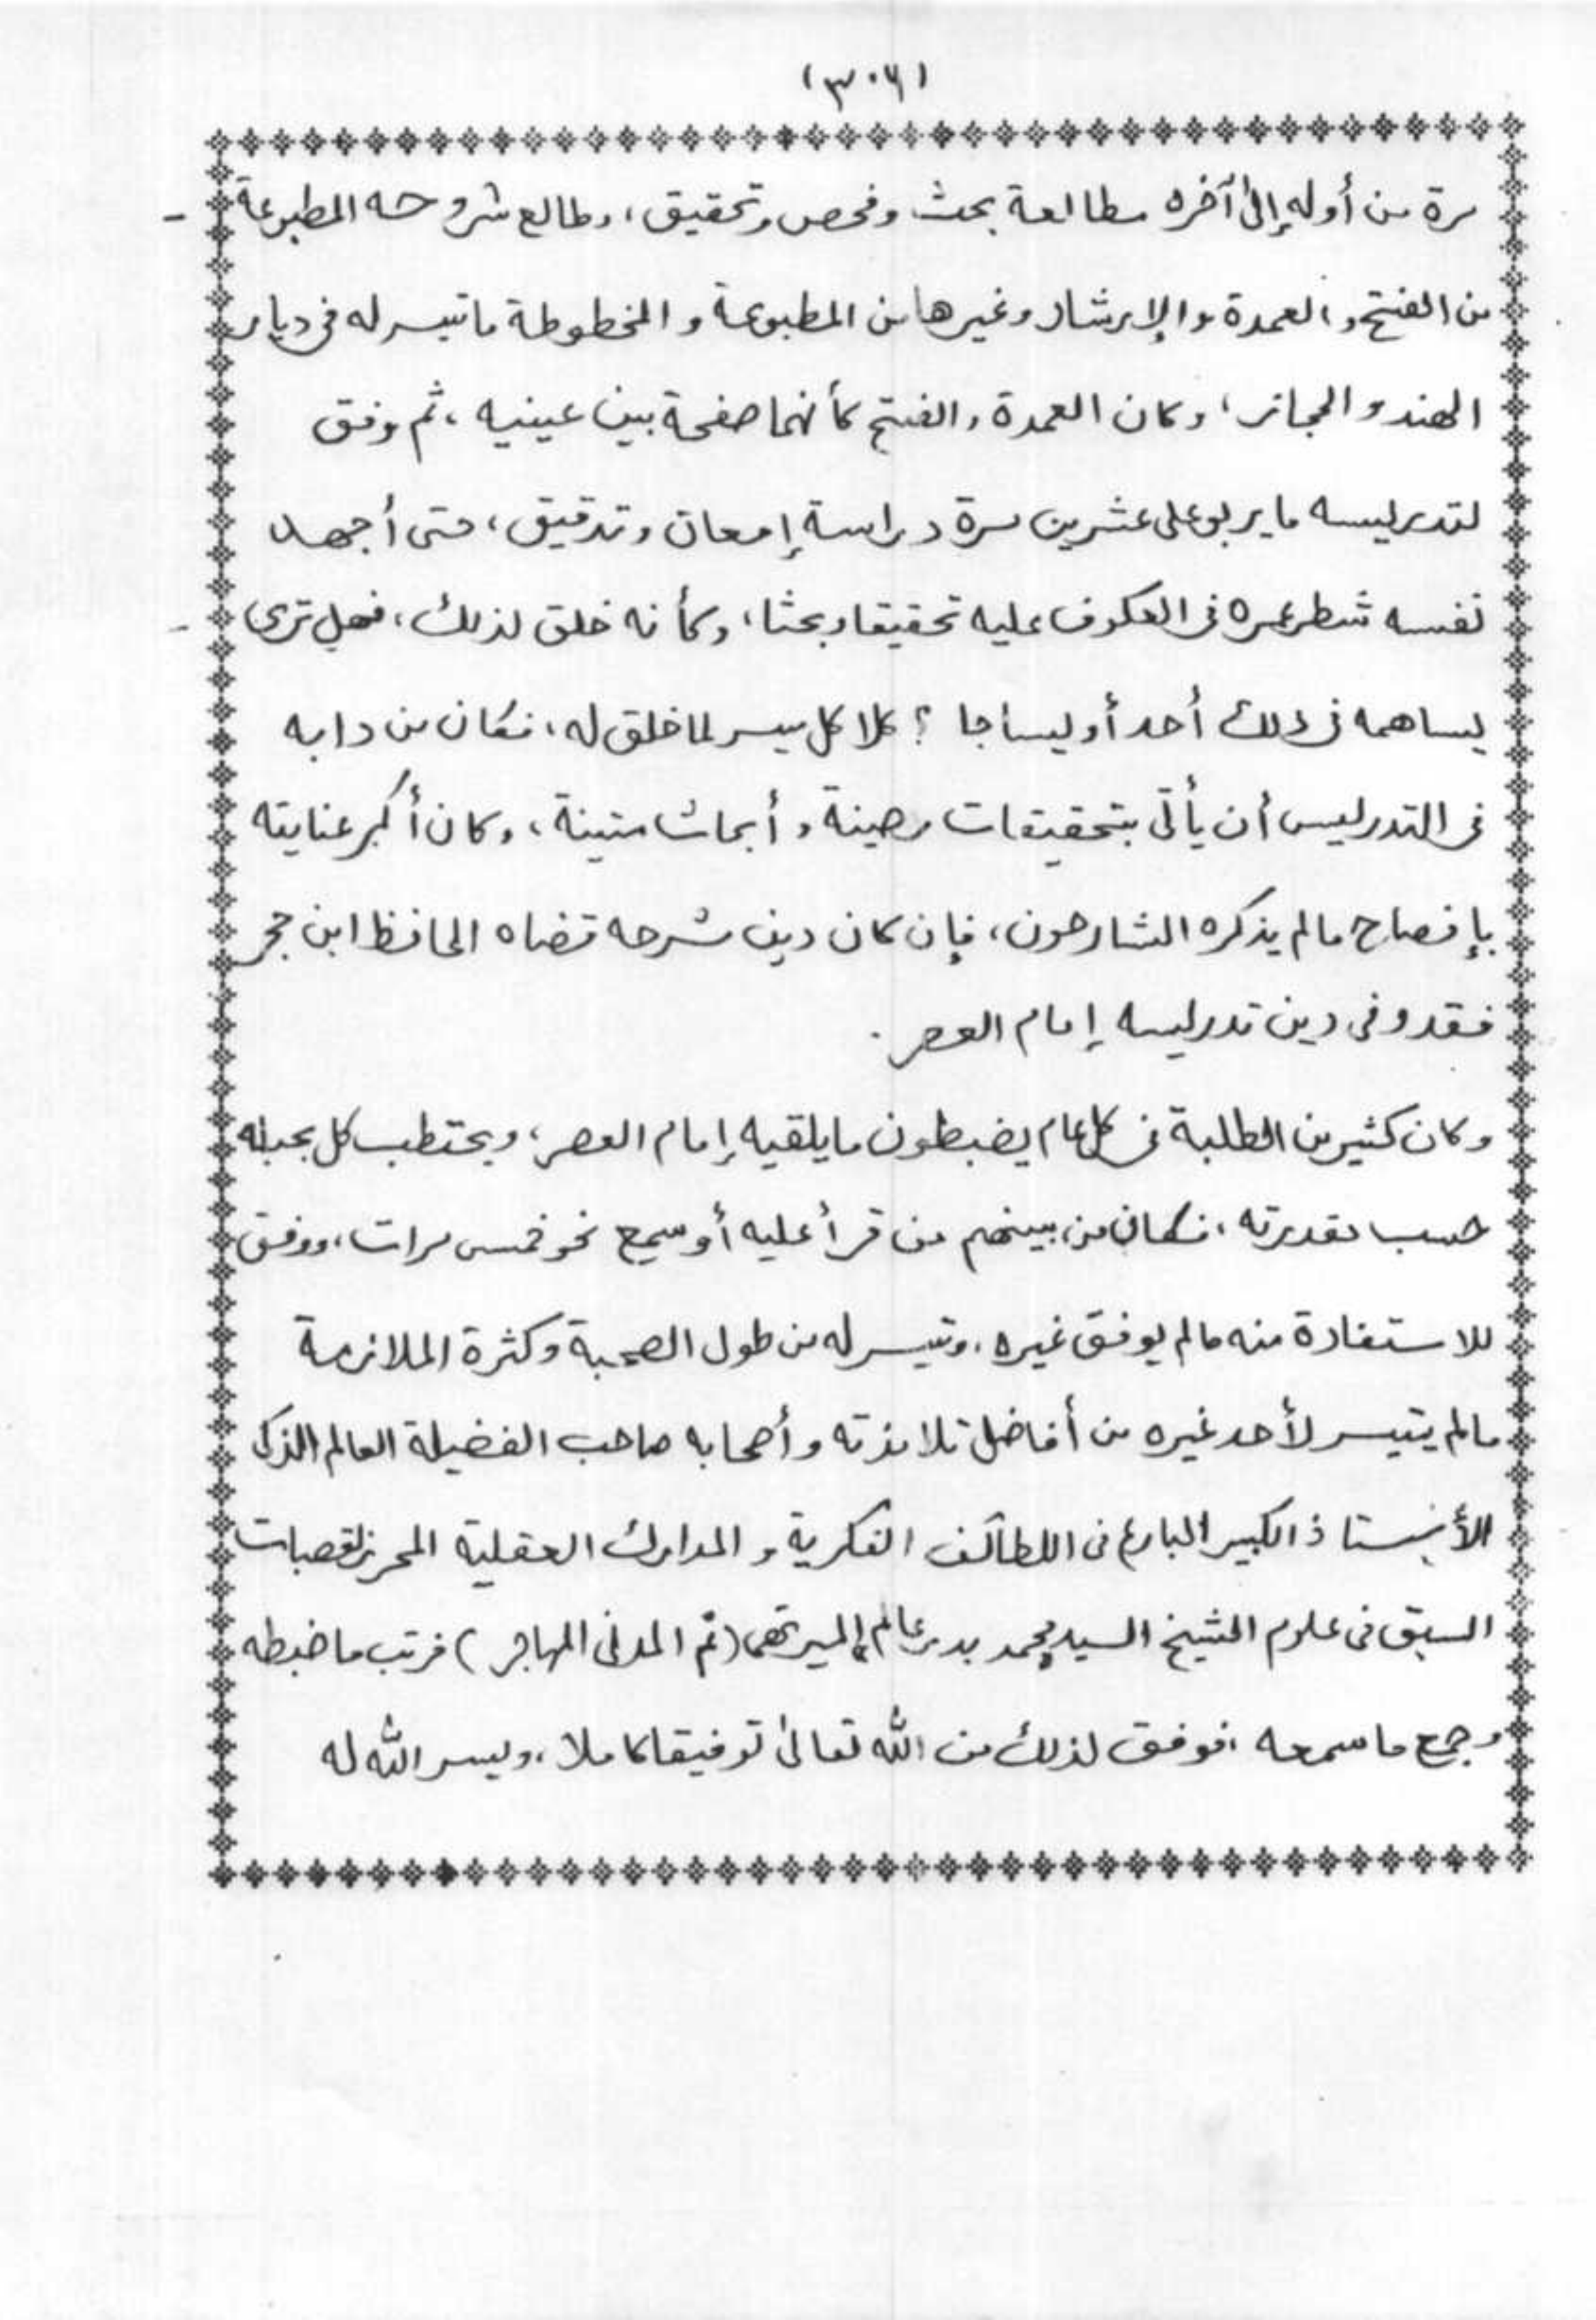 (٣٠٦)
مرة من أوله إلى آخره مطالعة بحث وفحص وتحقيق، وطالع شروحه المطبوعة
من الفتح والعمدة والإرشاد وغيرها من المطبوعة والمخطوطة ما تيسر له في ديار
الهند والحجاز، وكان العمدة والفتح كأنهما صفحة بين عينيه، ثم وفق
لتدريسه ما يربو على عشرين مرة دراسة إمعان وتدقيق، حتى أجهد
نفسه شطر عمره في العكوف عليه تحقيقا وبحثا، وكأنه خلق لذلك، فهل ترى
يساهمه في ذلك أحد أو يساجل؟ كلا كل ميسر لما خلق له، فكان من دابه
في التدريس أن يأتي بتحقيقات رصينة وأبحاث متينة، وكان أكبر عنايته
بإفصاح مالم يذكره الشارحون، فإن كان دين شرحه قضاه الحافظ ابن حجر
فقد وفى دين تدريسه إمام العصر.
وكان كثير من الطلبة في كل عام يضبطون ما يلقيه إمام العصر، ويحتطب كل بحبله
حسب مقدرته، فكان من بينهم من قرأ عليه أو سمع نحو خمس مرات، ووفق
للاستفادة منه مالم يوفق غيره، وتيسر له من طول الصحبة وكثرة الملازمة
مالم يتيسر لأحد غيره من أفاضل تلامذته وأصحابه صاحب الفضيلة العالم الذكى
الأستاذ الكبير البارع في اللطائف الفكرية والمدارك العقلية المحرز لقصبات
السبق في علوم الشيخ السيد محمد بدر عالم الميرتهى (ثم المدني المهاجر) فرتب ما ضبطه
وجمع ما سمعه، فوفق لذلك من الله تعالى توفيقا كاملا، ويسر الله له